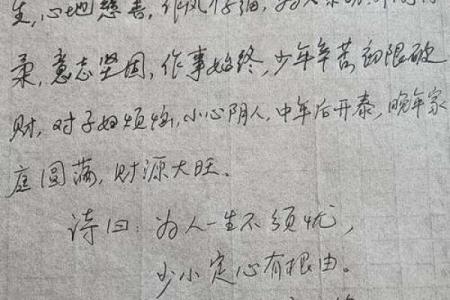 生,心地慈善,作风仔细,为人
柔,意志坚固,作事始终,少年辛苦,初限破
财,对子女烦恼,小心阴人,中年后开泰,晚年家
庭圆满,财源大旺。
诗曰:为人一生不须忧,
少小定心有根由。